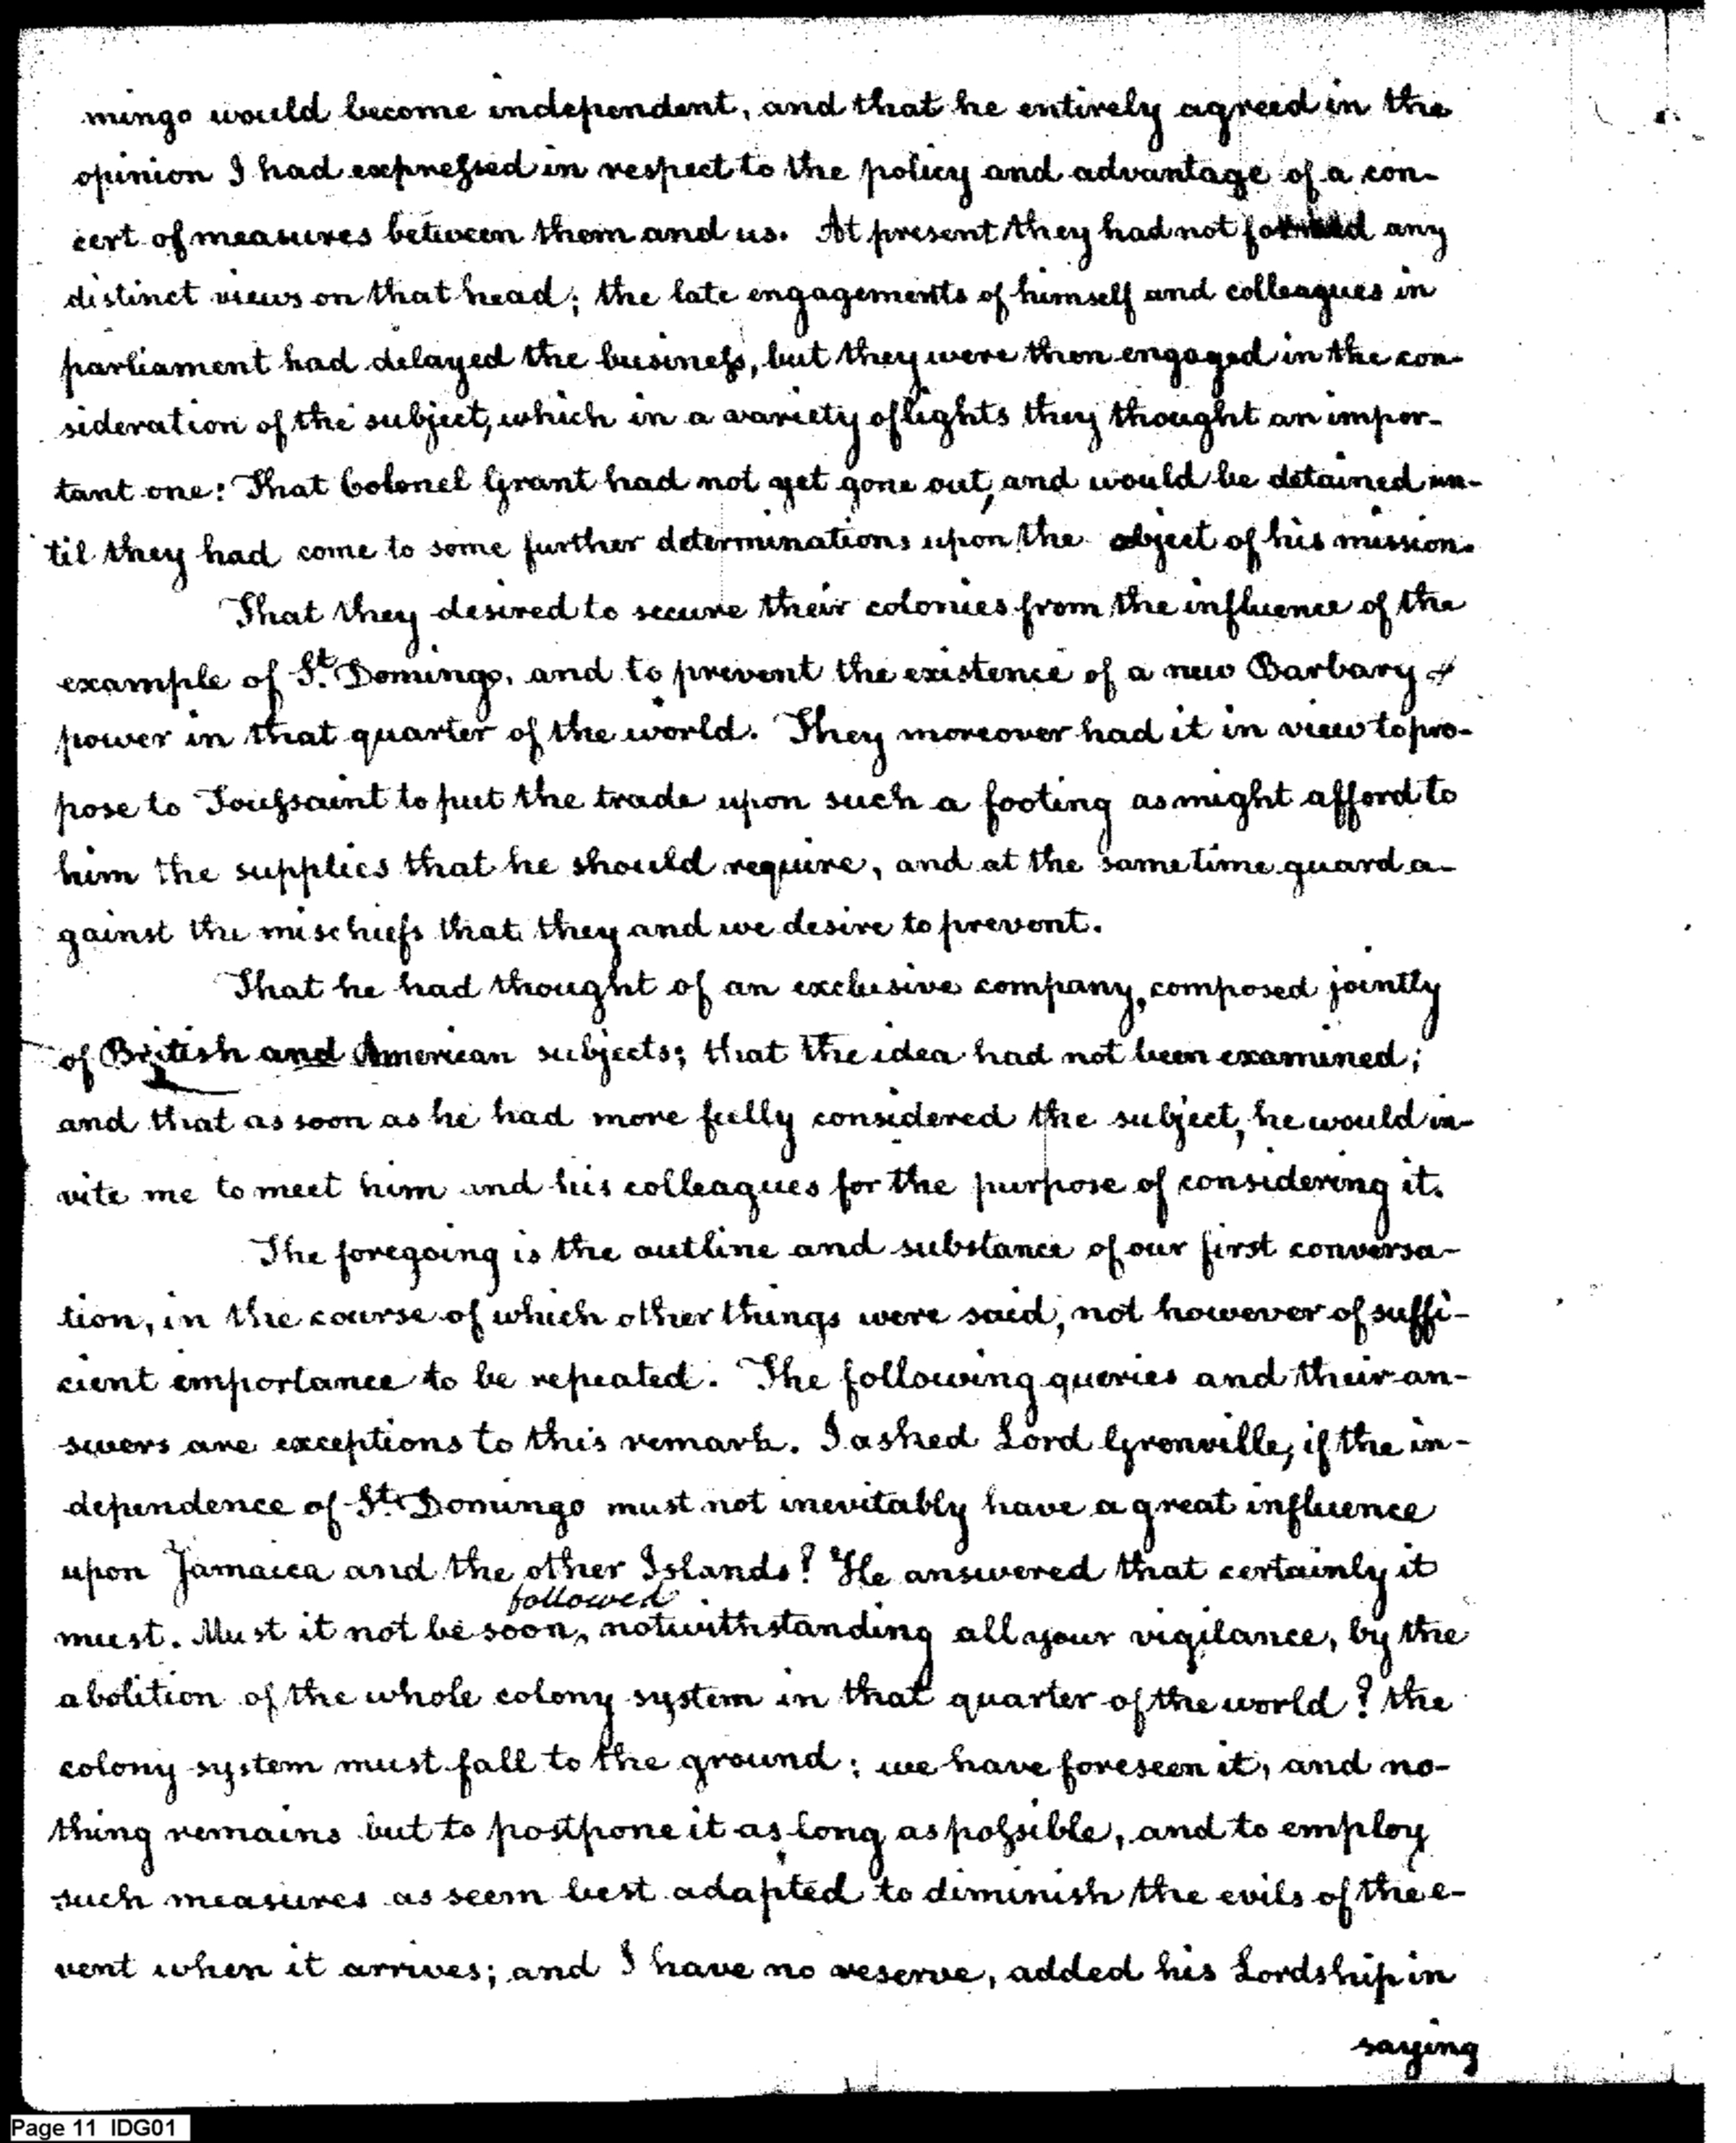 mingo would become independent, and that he entirely agreed in the
opinion I had expressed in respect to the policy and advantage of a con-
cert of measures between them and us. At present they had not formed any
distinct views on that head; the late engagements of himself and colleagues in
parliament had delayed the business, but they were then engaged in the con-
sideration of the subject, which in a variety of lights they thought an impor-
tant one: That Colonel Grant had not yet gone out, and would be detained un-
til they had come to some further determinations upon the object of his mission.
That they desired to secure their colonies from the influence of the
example of St. Domingo, and to prevent the existence of a new Barbary
power in that quarter of the world. They moreover had it in view to pro-
pose to Toussaint to put the trade upon such a footing as might afford to
him the supplies that he should require, and at the same time guard a-
gainst the mischiefs that they and we desire to prevent.
That he had thought of an exclusive company, composed jointly
of British and American subjects; that the idea had not been examined;
and that as soon as he had more fully considered the subject, he would in-
vite me to meet him and his colleagues for the purpose of considering it.
The foregoing is the outline and substance of our first conversa-
tion, in the course of which other things were said, not however of suffi-
cient importance to be repeated. The following queries and their an-
swers are exceptions to this remark. I asked Lord Grenville, if the in-
dependence of St. Domingo must not inevitably have a great influence
upon Jamaica and the other Islands? He answered that certainly it
followed
must. Must it not be soon, notwithstanding all your vigilance, by the
abolition of the whole colony system in that quarter of the world? the
colony system must fall to the ground; we have foreseen it, and no-
thing remains but to postpone it as long as possible, and to employ
such measures as seem best adapted to diminish the evils of the e-
vent when it arrives; and I have no reserve, added his Lordship in
saying
Page 11 IDG01